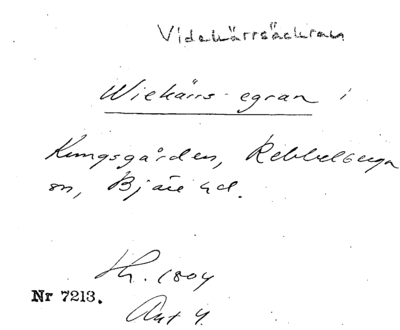 Videkärrsäckran
Wiekärrs-egran i
Kungsgården, Rebbelberga
sn, Bjäre hd.
Lh. 1804
Nr 7213.
Akt 4.